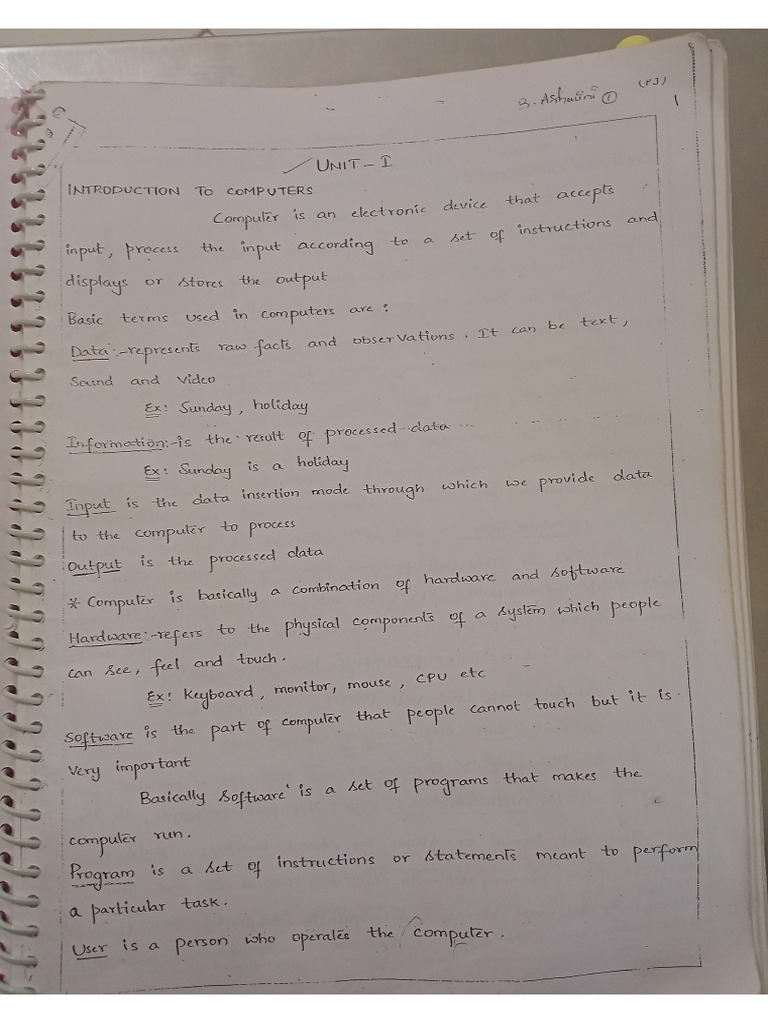 3. Ashwini ① (PJ) 1
UNIT - I
INTRODUCTION TO COMPUTERS
Computer is an electronic device that accepts
input, process the input according to a set of instructions and
displays or stores the output
Basic terms used in computers are:
Data:- represents raw facts and observations. It can be text,
Sound and Video
Ex: Sunday, holiday
Information:- is the result of processed data
Ex: Sunday is a holiday
Input is the data insertion mode through which we provide data
to the computer to process
Output is the processed data
* Computer is basically a combination of hardware and software
Hardware:- refers to the physical components of a system which people
can see, feel and touch.
Ex: Keyboard, monitor, mouse, CPU etc
Software is the part of computer that people cannot touch but it is
Very important
Basically software is a set of programs that makes the
computer run.
Program is a set of instructions or statements meant to perform
a particular task.
User is a person who operates the computer.